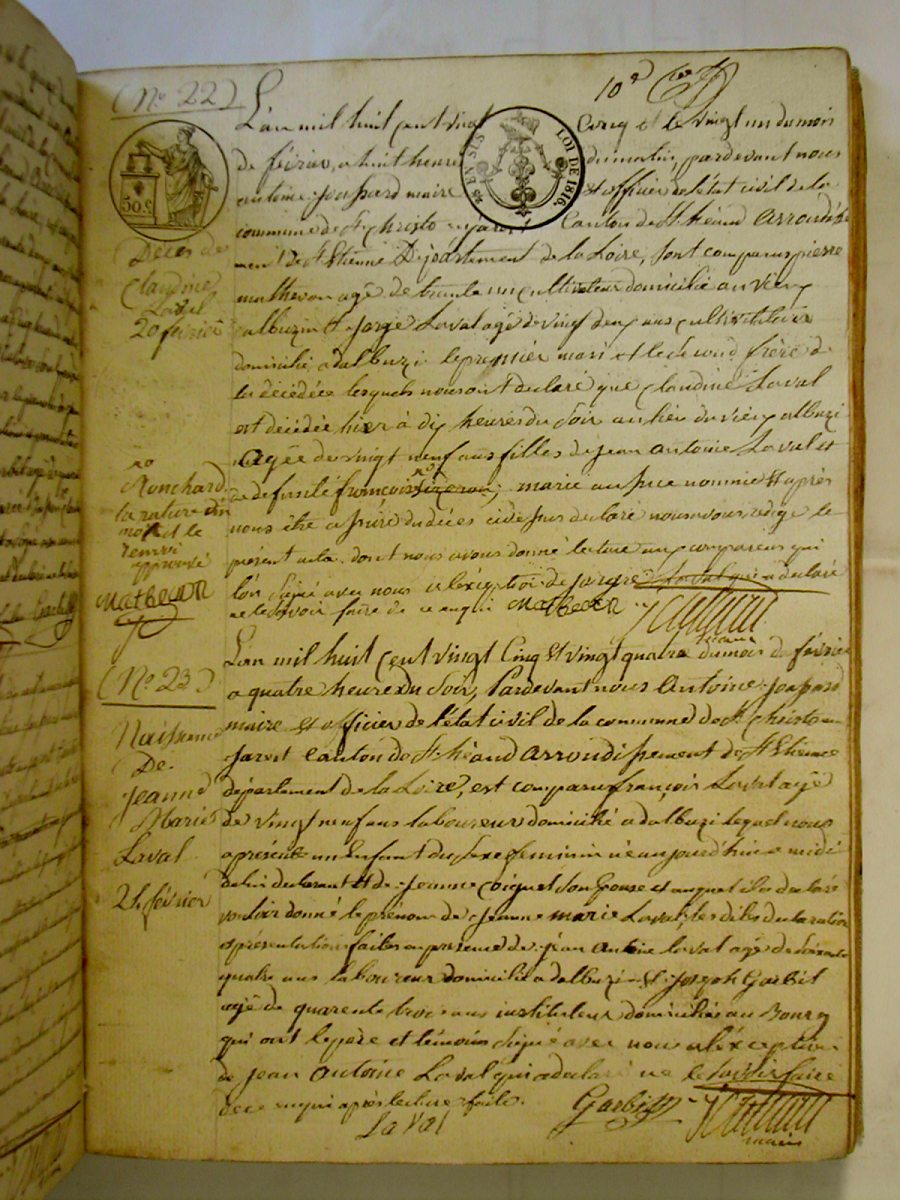 (No. 22)
10e
50 c
EN SUS
LOI DE 1816
Décès de
Claudine
Laval
20 février
L'an mil huit cent vingt Cinq et le vingt un du mois
de février, a huit heures du matin, pardevant nous
antoine Jouffard maire et officier de l'état civil de la
commune de St. Christo en jarest Canton de St. héand arrondisse
ment de St Etienne Département de la Loire, sont comparus pierre
matheron agé de trente un cultivateur domicilié au vieux
albuzi Et Laval agé de vingt deux ans cultivateur
domicilié a dalbuzi le premier mari et le second frère de
la décédée lesquels nous ont declaré que Claudine Laval
est décédée hier à dix heures du soir au lieu du vieux albuzi
agée de vingt neuf ans filles de jean antoine Laval et
de defunte françoise marie au puce nommie Et après
nous être assuré du déces ci dessus declaré nous avons rédigé le
présent acte dont nous avons donné lecture aux comparens qui
l'ôn signé avec nous a léxception de Laval qui a declaré
ne le savoir faire de ce enqui Matheron
ro
Monchard
la rature d'un
mot et le
renvoi
approuvé
Matheron
(No. 23)
Naissance
De
Jeanne
Marie
Laval
24 février
L'an mil huit Cent vingt Cinq Et vingt quatre du mois de février
a quatre heures du soir, Pardevant nous Antoine Jouffard
maire et officier de l'état civil de la commune de St. Christo en
Jarest Canton de St. héand arrondissement de St Etienne
département de la Loire, est comparu françois Laval agé
de vingt neuf ans laboureur domicilié a dalbuzi lequel nous
a présenté un Enfant du sexe feminin né aujourd'hui a midi
de lui declarant et de Jeanne Coignet son Epouse et auquel il a declaré
vouloir donné le prénom de Jeanne marie Laval, les dites declaration
et présentation faites en presence de jean Antoine laval agé de soixante
quatre ans laboureur domicilié a dalbuzi Et Joseph Garbit
agé de quarente trois ans instituteur domicilié au Bourg
qui ont le père et témoins signé avec nous a léxception
de jean antoine Laval qui a declaré ne le savoir faire
de ce enqui après lecture faite. Garbit
LaVal
maire